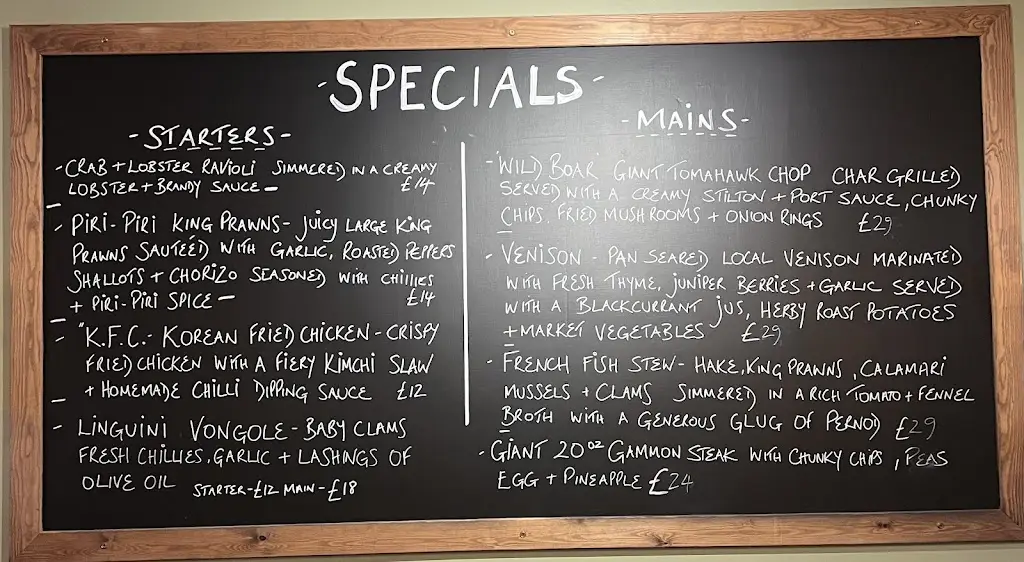 - SPECIALS -
- STARTERS -
- CRAB + LOBSTER RAVIOLI SIMMERED IN A CREAMY
LOBSTER + BRANDY SAUCE - £14
- PIRI-PIRI KING PRAWNS - JUICY LARGE KING
PRAWNS SAUTEED WITH GARLIC, ROASTED PEPPERS
SHALLOTS + CHORIZO SEASONED WITH CHILLIES
+ PIRI-PIRI SPICE - £14
- "K.F.C.- KOREAN FRIED CHICKEN - CRISPY
FRIED CHICKEN WITH A FIERY KIMCHI SLAW
+ HOMEMADE CHILLI DIPPING SAUCE £12
- LINGUINI VONGOLE - BABY CLAMS
FRESH CHILLIES, GARLIC + LASHINGS OF
OLIVE OIL STARTER-£12 MAIN-£18
- MAINS -
- 'WILD BOAR' GIANT TOMAHAWK CHOP CHAR GRILLED
SERVED WITH A CREAMY STILTON + PORT SAUCE, CHUNKY
CHIPS, FRIED MUSHROOMS + ONION RINGS £29
- VENISON - PAN SEARED LOCAL VENISON MARINATED
WITH FRESH THYME, JUNIPER BERRIES + GARLIC SERVED
WITH A BLACKCURRANT JUS, HERBY ROAST POTATOES
+ MARKET VEGETABLES £29
- FRENCH FISH STEW - HAKE, KING PRAWNS, CALAMARI
MUSSELS + CLAMS SIMMERED IN A RICH TOMATO + FENNEL
BROTH WITH A GENEROUS GLUG OF PERNOD £29
- GIANT 20oz GAMMON STEAK WITH CHUNKY CHIPS, PEAS
EGG + PINEAPPLE £24